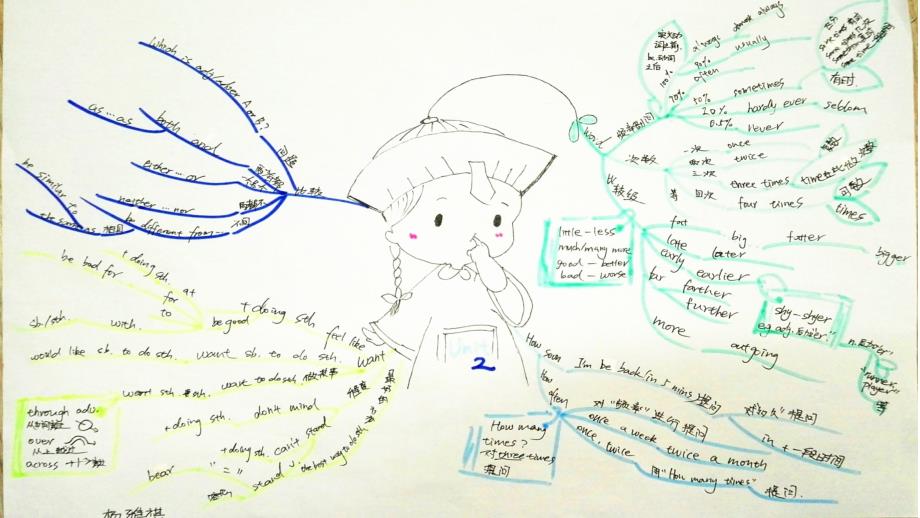 Which is adj/adver A or B?
问题
as...as
both and
两者都
either...or
neither...nor
比较
be similar to
the same as 相同
be different from... 不同
word
频率副词
实义动词之前,
be动词之后
100% always
almost always
90% usually
70% often
50% sometimes
有时
20% hardly ever
seldom
0.5% never
次数
一次 once
两次 twice
三次 three times
四次 four times
等
times
可数
比较级
little-less
much/many more
good-better
bad-worse
fat
big
fatter
bigger
late later
early earlier
far farther
further
more
outgoing
shy-shyer
"runner,
player"
等
+ doing sth.
be bad for
for
to
be good
with.
sb./sth.
+doing sth.
feel like
want
would like sb. to do sth.
want sb. to do sth.
want sth.
want to do sth.
+doing sth.
don't mind
+doing sth.
can't stand
bear "=" stand
the best way to do sth.
through adv.
over
across
Unit
2
How soon
I'm be back in 5 mins
提问
对"初次"提问
in + 一段时间
How often
对"频率"进行提问
once a week twice a month
once, twice
用"How many times"提问.
How many
times?
对three times
提问
杨雅祺